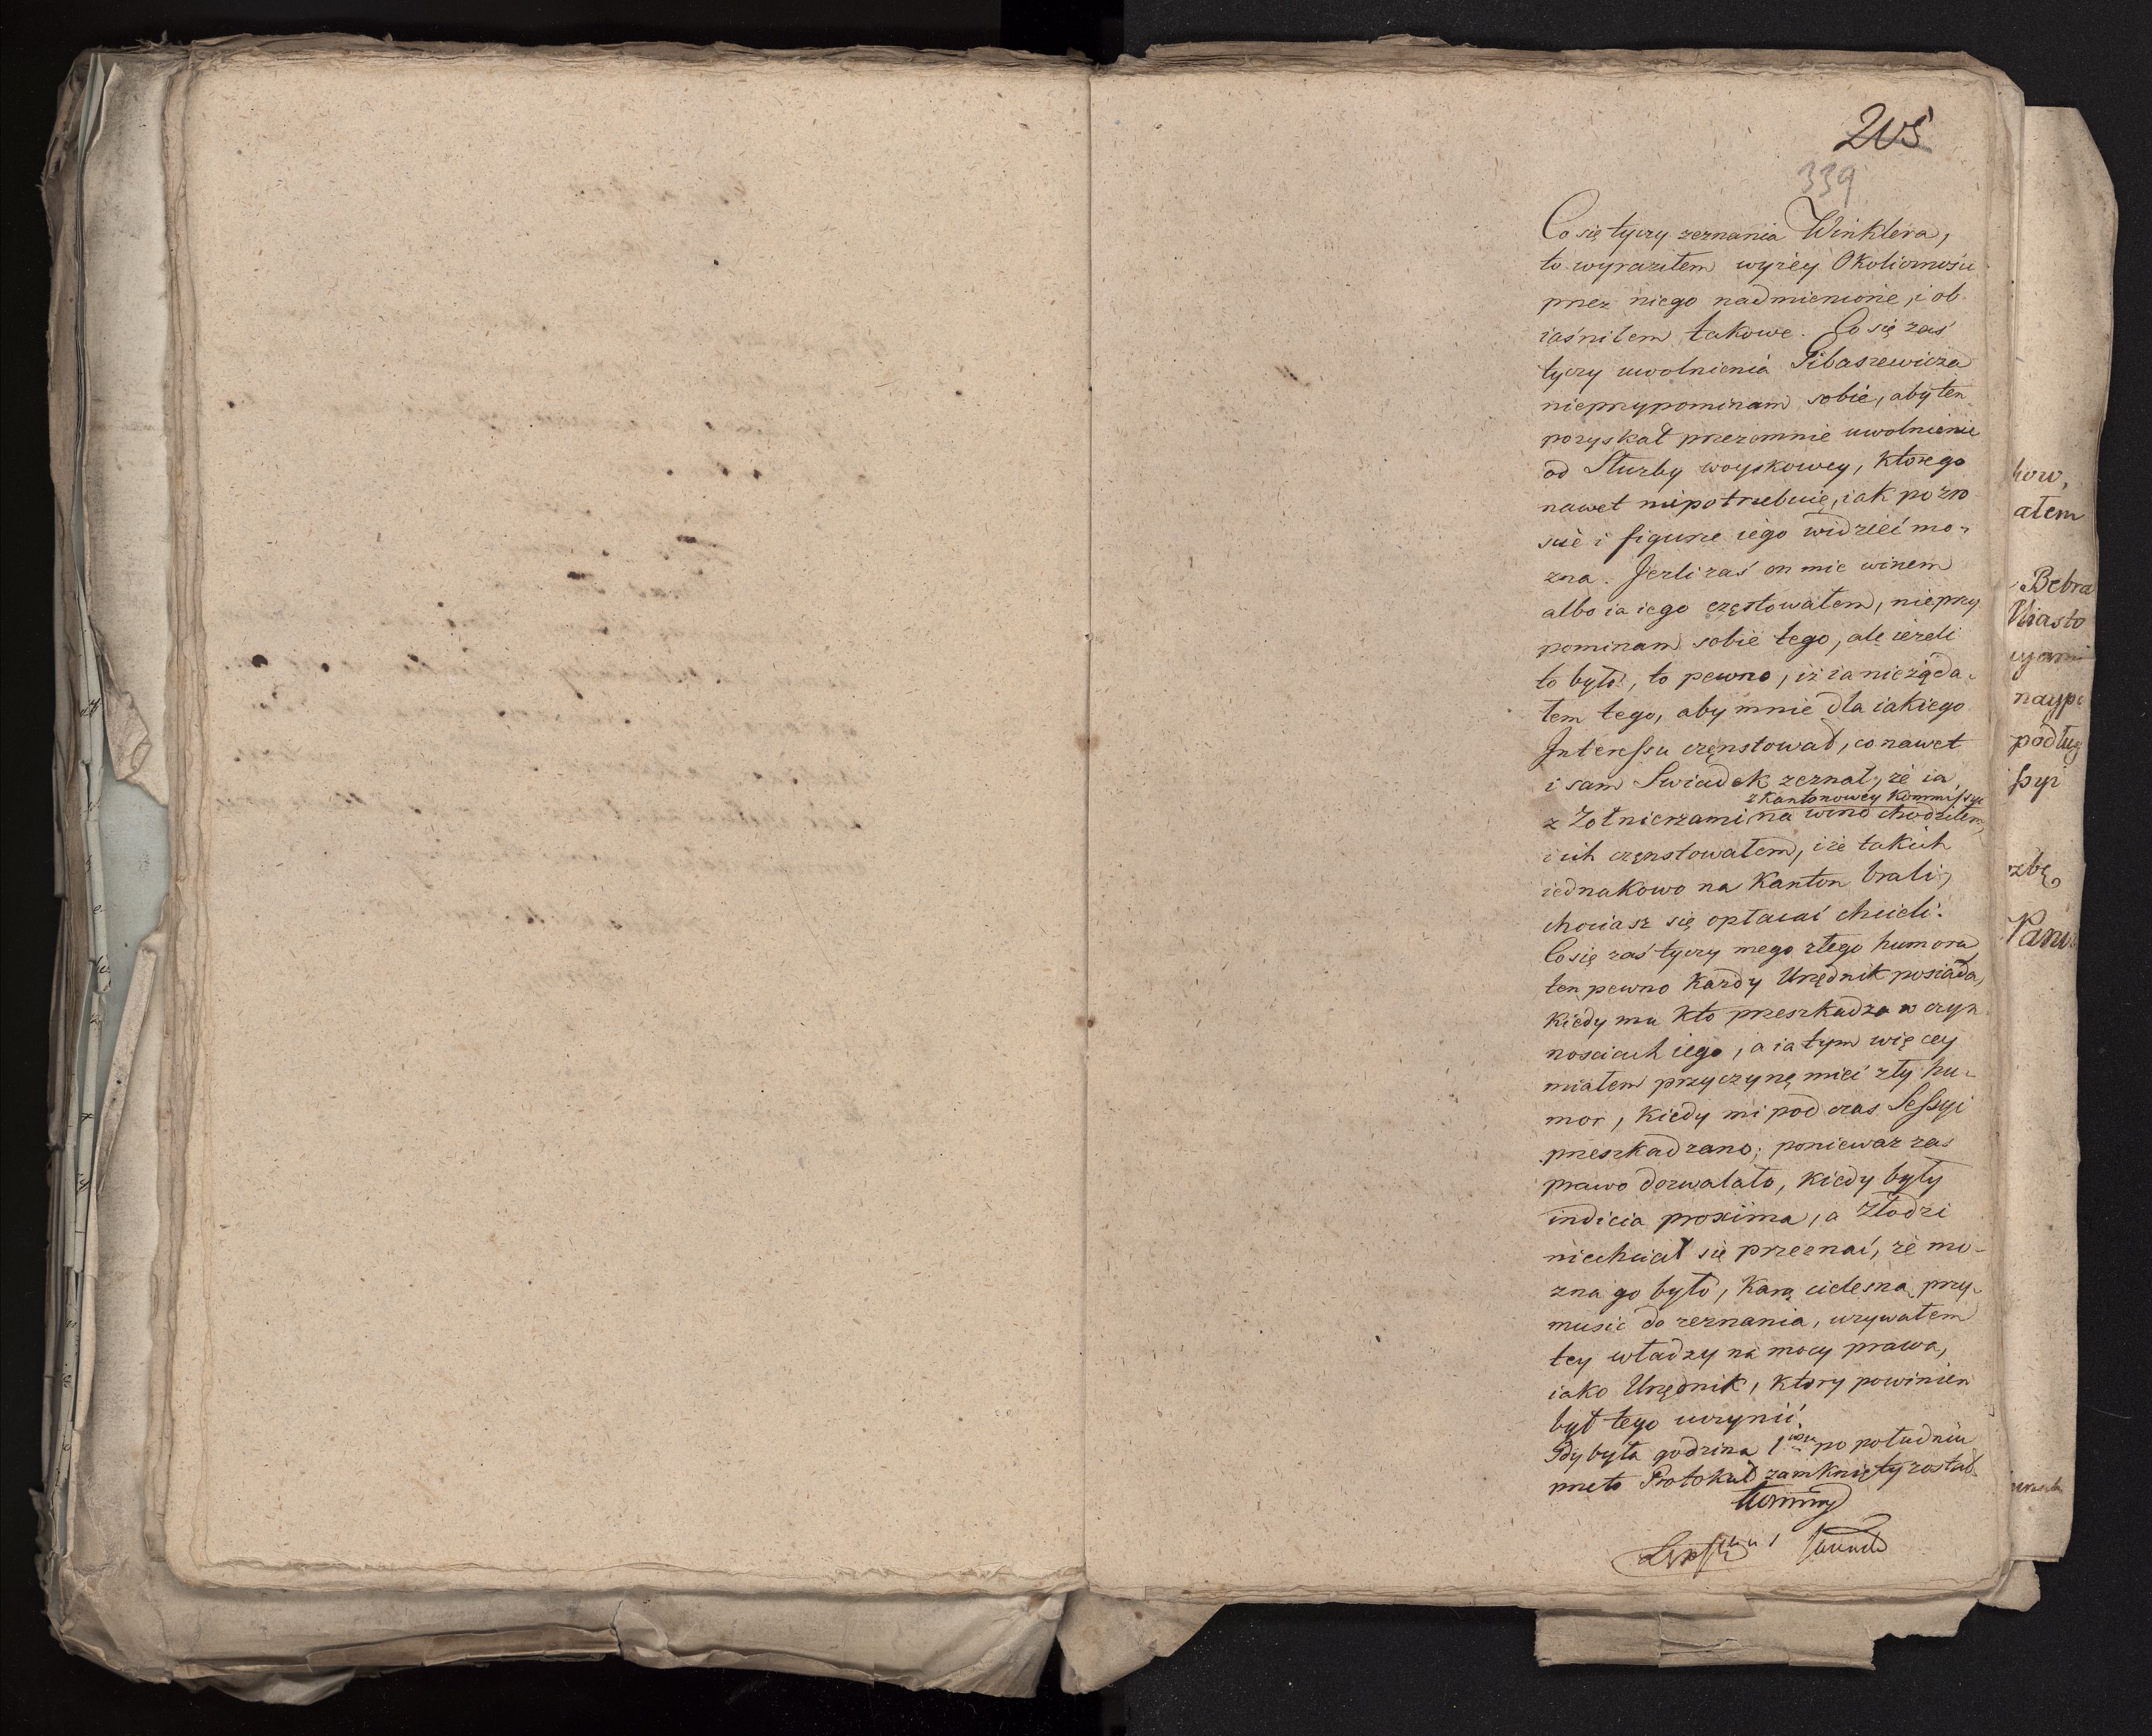 205
339
Co się tyczy zeznania Winklera,
to wyraziłem wyżey Okoliczności
przez niego nadmienione, i ob
iaśniłem takowe. Co się zaś
tyczy uwolnienia Gibaszewicza
nieprzypominam sobie, aby ten
pozyskał przezemnie uwolnienie
od Służby woyskowey, ktorego
nawet niepotrzebuie, iak po wzro
scie i figurze iego widzieć mo-
zna. Jezli zaś on mie winem
albo ia iego częstowałem, nieprzy
pominam sobie tego, ale ieżeli
to było, to pewno, iż ia nieżąda-
łem tego, aby mnie dla iakiego
Interessu częnstował, co nawet
i sam Swiadek zeznał, że ia
z Kantonowey Kommissyi
z Zołnierzami na wino chodziłem,
i ich częnstowałem, i że takich
iednakowo na Kanton brali,
chociasz się opłacać chcieli.
Co się zaś tyczy mego złego humoru,
ten pewno Każdy Urzędnik posiada,
Kiedy mu kto przeszkadza w czyn
nosciach iego, a ia tym więcey
miałem przyczynę mieć zły hu-
mor, Kiedy mi pod czas Sessyi
przeszkadzano; ponieważ zas
prawo dozwalało, Kiedy były
indicia proxima, a Złodzi
niechciał się przeznać, że mo-
zna go było, Karą cielesną przy-
music do zeznania, używałem
tey władzy na mocy prawa,
iako Urzędnik, ktory powinien
był tego uczynić.
Gdy była godzina 1 po południu
przeto Protokuł zamknięty został
how,
ałem
Bebra
Miasto
naype
podług
ssyi
zbę